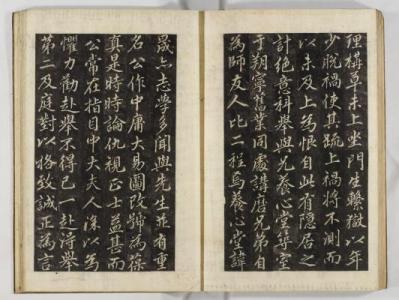 理構草未上坐門生繫獄以年
少脫禍使其疏上禍將不測而
以未及上為恨自此有隱居之
計絕意科舉與兄養心堂筑室
于翔寧舊業同處講磨兄弟自
為師友人比二程焉養心堂諱
晟亦志學多聞與先生並有重
名公作中庸大易圖改號為葆
真是時時論仇視正士益甚而
公常在指目中大夫人深以為
懼力勸赴舉不得已一赴涉舉
第二及庭對以格致誠正為言